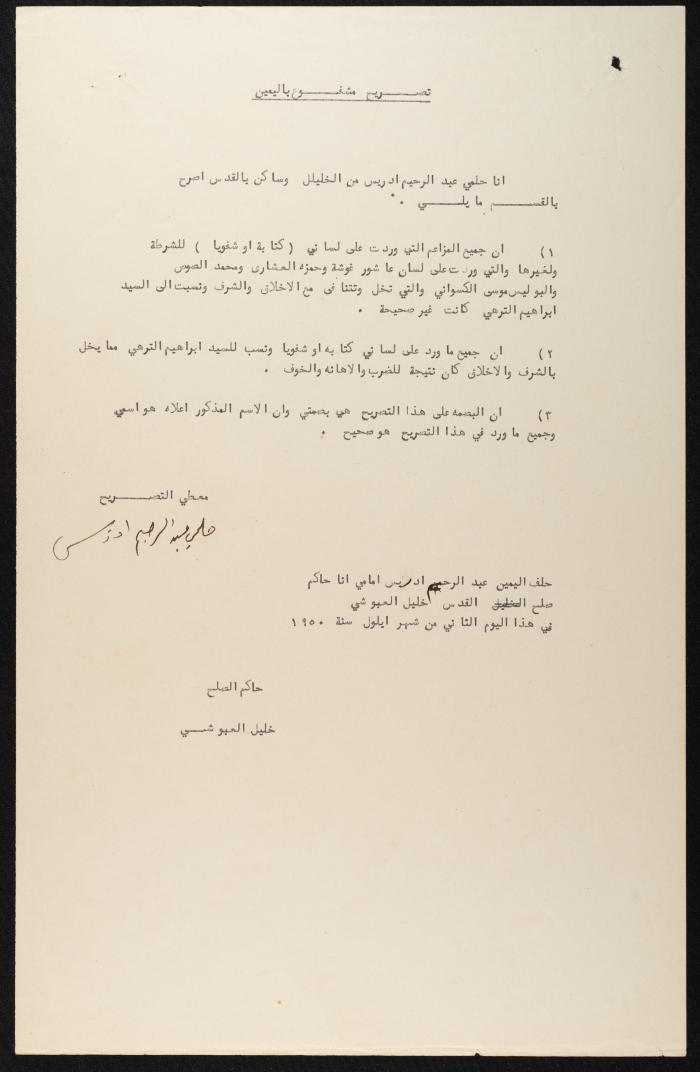 تصـــريح مشفـــوع باليمين
انا حلمي عبد الرحيم ادريس من الخليلل وساكن بالقدس اصرح
بالقســـم ما يلـــي .
١) ان جميع المزاعم التي وردت على لساني (كتابة او شفويا ) للشرطة
ولغيرها والتي وردت على لسان عاشور غوشة وحمزه العشارى ومحمد الصوص
والبوليس موسى الكسواني والتي تخل وتتنافى مع الاخلاق والشرف ونسبت الى السيد
ابراهيم الترهي كانت غير صحيحة .
٢) ان جميع ما ورد على لساني كتابه او شفويا ونسب للسيد ابراهيم الترهي مما يخل
بالشرف والاخلاق كان نتيجة للضرب والاهانه والخوف .
٣) ان البصمه على هذا التصريح هي بصمتي وان الاسم المذكور اعلاه هو اسمي
وجميع ما ورد في هذا التصريح هو صحيح .
معطي التصـــريح
حلمي عبد الرحيم ادريس
حلف اليمين عبد الرحيم ادريس امامي انا حاكم
صلح الخليل القدس خليل العبوشي
في هذا اليوم الثاني من شهر ايلول سنة ١٩٥٠
حاكم الصلح
خليل العبوشـــي